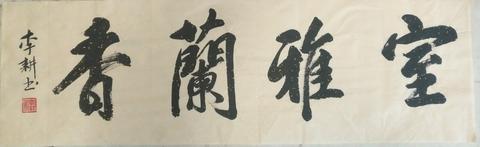 室雅蘭香
李耕书